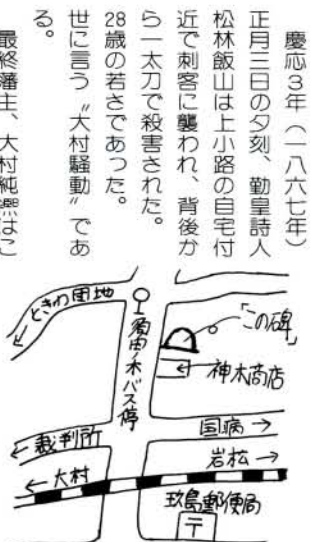 慶応3年（一八六七年）
正月三日の夕刻、勤皇詩人
松林飯山は上小路の自宅付
近で刺客に襲われ、背後か
ら一太刀で殺害された。
28歳の若さであった。
世に言う〝大村騒動〟であ
る。
最終藩主、大村純熈はこ
ときわ団地
須田ノ木バス停
「この碑」
神木商店
裁判所
国病→
←大村
岩松→
玖島郵便局
〒